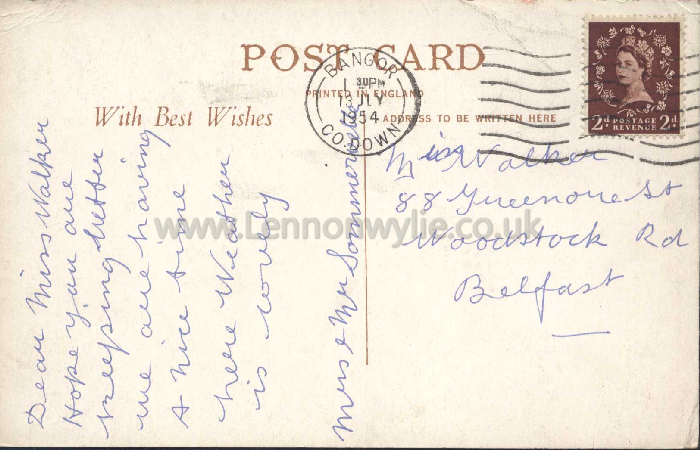 POST CARD
PRINTED IN ENGLAND
With Best Wishes
ADDRESS TO BE WRITTEN HERE
BANGOR
1 30PM
13 JLY
1954
CO. DOWN
2d POSTAGE REVENUE 2d
Dear Miss Walker
Hope you are
keeping better
we are having
A nice time
here Weather
is lovely
Miss & Mr
Miss Walker
88 Greenore St
Woodstock Rd
Belfast
www.Lennonwylie.co.uk